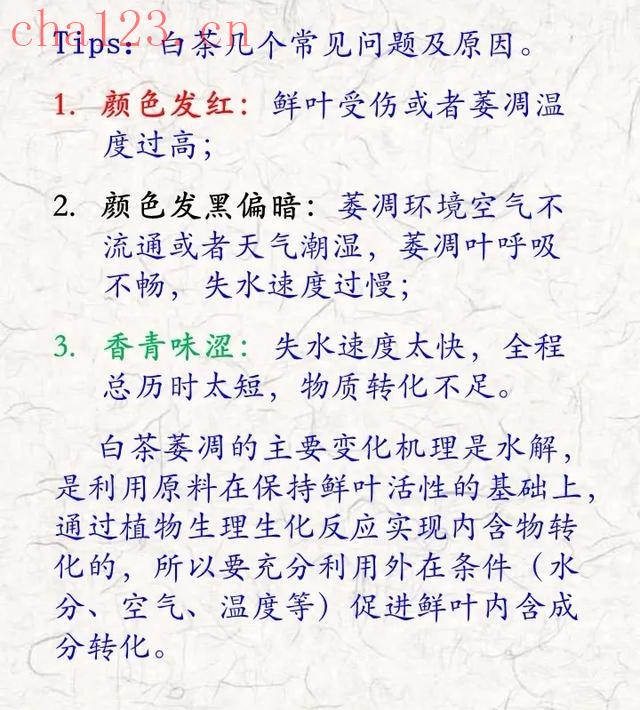 cha123.cn
Tips：白茶几个常见问题及原因。
1. 颜色发红：鲜叶受伤或者萎凋温
度过高；
2. 颜色发黑偏暗：萎凋环境空气不
流通或者天气潮湿，萎凋叶呼吸
不畅，失水速度过慢；
3. 香青味涩：失水速度太快，全程
总历时太短，物质转化不足。
白茶萎凋的主要变化机理是水解，
是利用原料在保持鲜叶活性的基础上，
通过植物生理生化反应实现内含物转
化的，所以要充分利用外在条件（水
分、空气、温度等）促进鲜叶内含成
分转化。